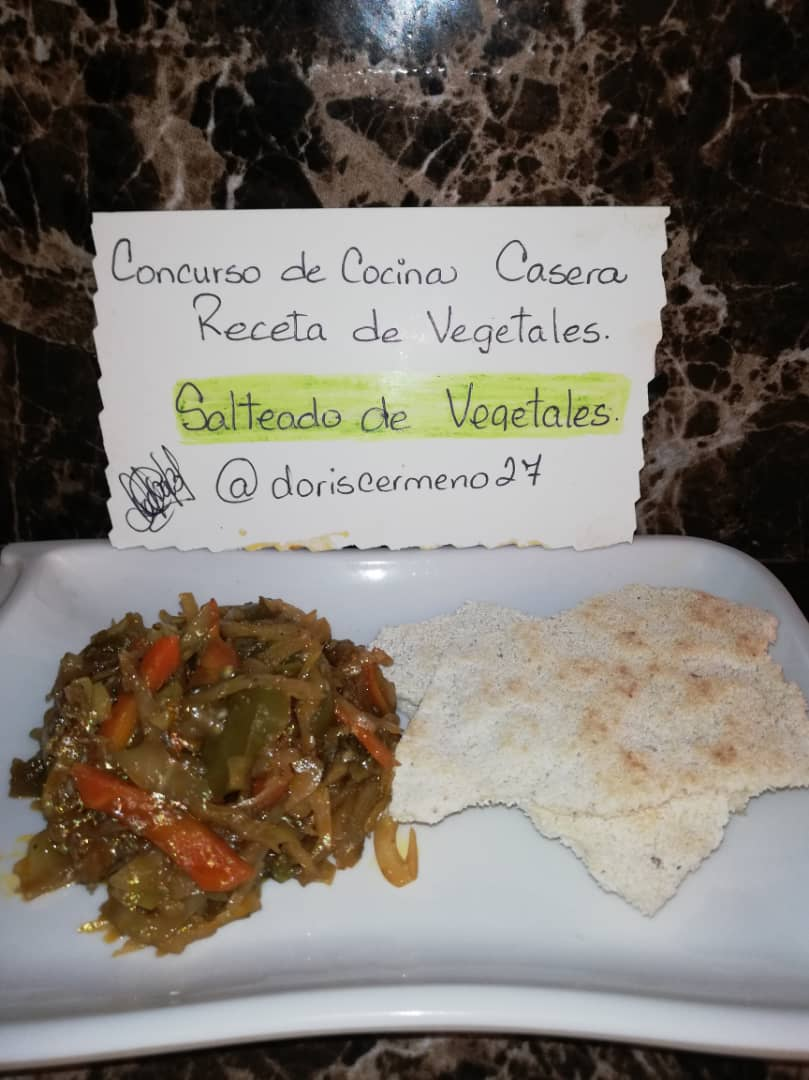 Concurso de Cocina Casera
Receta de Vegetales.
Salteado de Vegetales.
@doriscermeno27